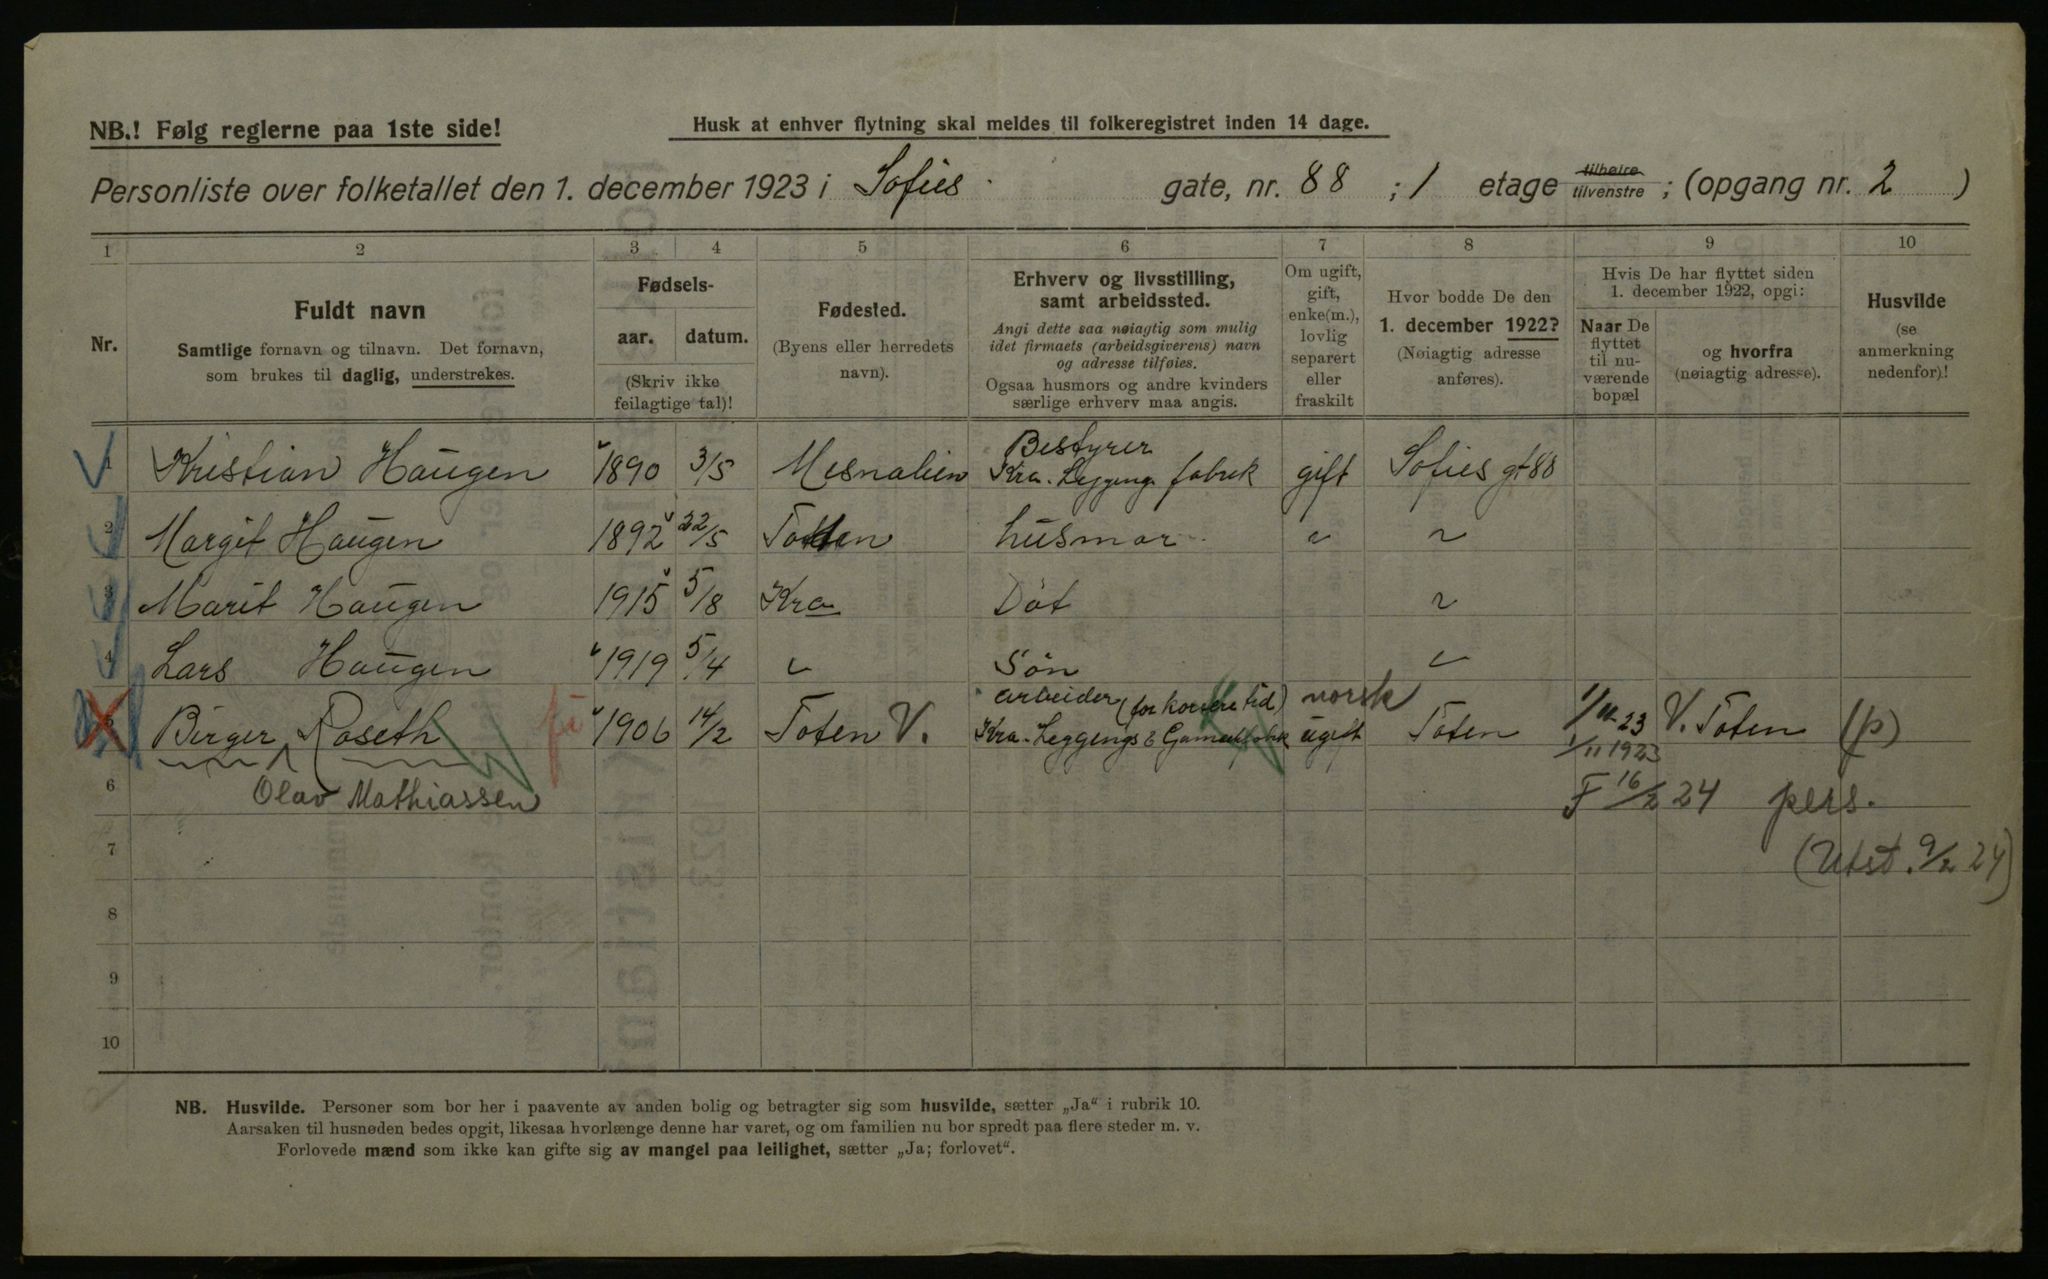 NB.! Følg reglerne paa 1ste side!
Husk at enhver flytning skal meldes til folkeregistret inden 14 dage.
Personliste over folketallet den 1. december 1923 i Sofies gate, nr. 88 ; 1 etage tilhøire tilvenstre ; (opgang nr. 2 )
1 2 3 4 5 6 7 8 9 10
Nr.
Fuldt navn
Samtlige fornavn og tilnavn. Det fornavn,
som brukes til daglig, understrekes.
Fødsels-
aar. datum.
(Skriv ikke
feilagtige tal)!
Fødested.
(Byens eller herredets
navn).
Erhverv og livsstilling,
samt arbeidssted.
Angi dette saa nøiagtig som mulig
idet firmaets (arbeidsgiverens) navn
og adresse tilføies.
Ogsaa husmors og andre kvinders
særlige erhverv maa angis.
Om ugift,
gift,
enke(m.),
lovlig
separert
eller
fraskilt
Hvor bodde De den
1. december 1922?
(Nøiagtig adresse
anføres).
Hvis De har flyttet siden
1. december 1922, opgi:
Naar De
flyttet
til nu-
værende
bopæl
og hvorfra
(nøiagtig adresse).
Husvilde
(se
anmerkning
nedenfor)!
Bestyrer
1 Kristian Haugen 1890 3/5 Mesnalien Kra. Leggings fabrik gift Sofies gt 88
2 Margit Haugen 1892 22/5 Toten husmor " "
3 Marit Haugen 1915 5/8 Kra Dat "
4 Lars Haugen 1919 5/4 " Søn "
arbeider (for kortere tid) norsk
5 Birger Roseth 1906 14/2 Toten V. Kra. Leggings & ugift Toten 1/11-23 V. Toten (p)
1/11 1923
6 Olav Mathiassen F 16/2 24 pers.
7 (Utst. 9/2 24)
8
9
10
NB. Husvilde. Personer som bor her i paavente av anden bolig og betragter sig som husvilde, sætter „Ja“ i rubrik 10.
Aarsaken til husnøden bedes opgit, likesaa hvorlænge denne har varet, og om familien nu bor spredt paa flere steder m. v.
Forlovede mænd som ikke kan gifte sig av mangel paa leilighet, sætter „Ja; forlovet“.